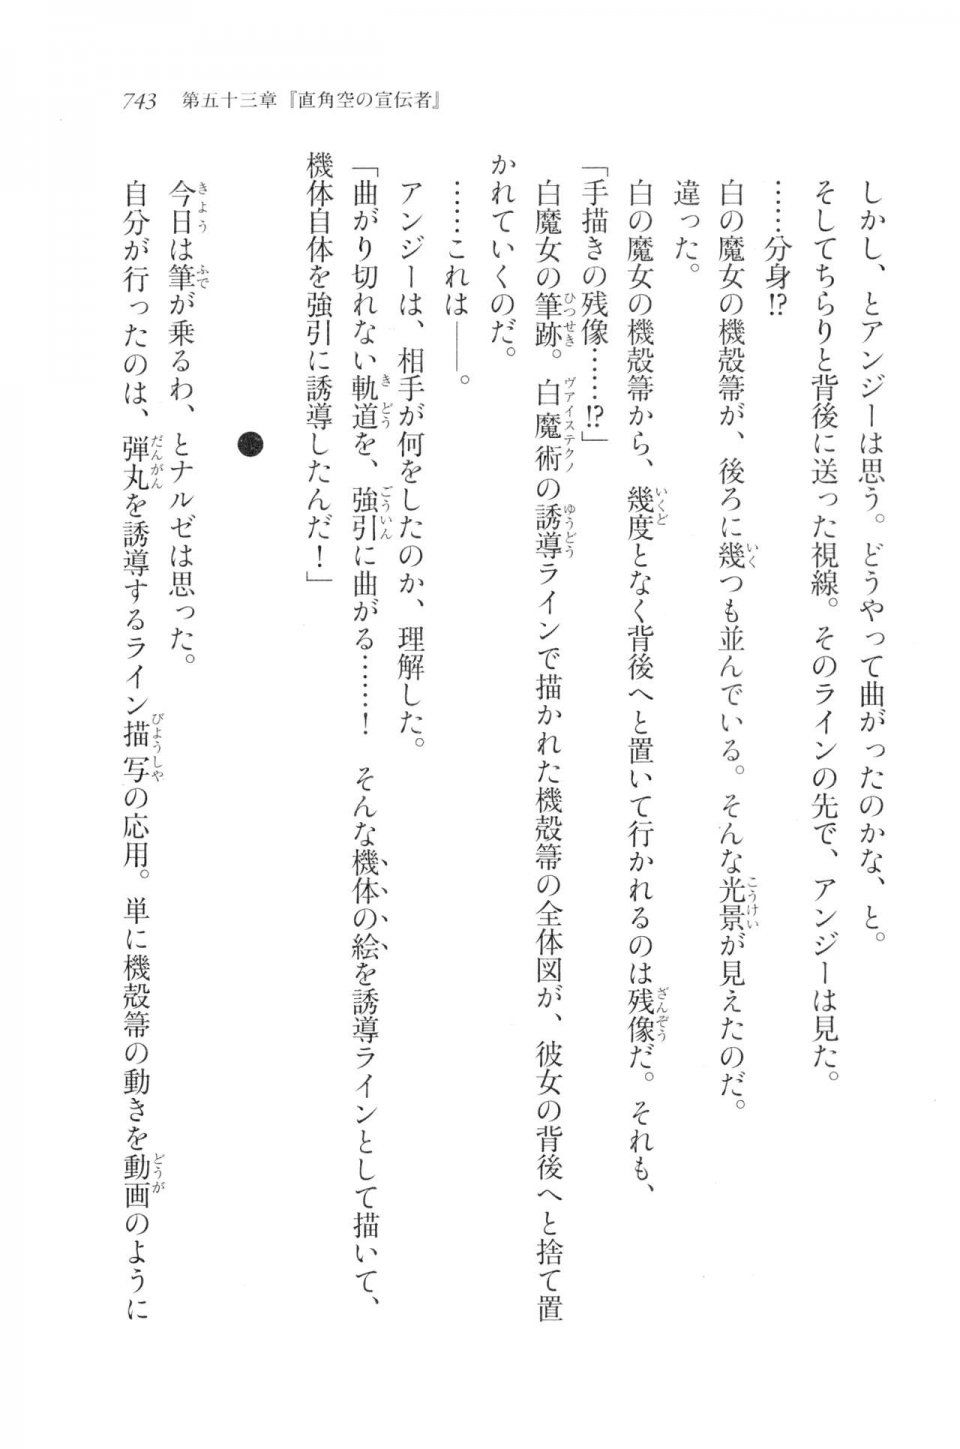 743 第五十三章『直角空の宣伝者』
しかし、とアンジーは思う。どうやって曲がったのかな、と。
そしてちらりと背後に送った視線。そのラインの先で、アンジーは見た。
……分身!?
白の魔女の機殻箒が、後ろに幾つも並んでいる。そんな光景が見えたのだ。
違った。
白の魔女の機殻箒から、幾度となく背後へと置いて行かれるのは残像だ。それも、
「手描きの残像……!?」
白魔女の筆跡。白魔術の誘導ラインで描かれた機殻箒の全体図が、彼女の背後へと捨て置
かれていくのだ。
……これは――。
アンジーは、相手が何をしたのか、理解した。
「曲がり切れない軌道を、強引に曲がる……！　そんな機体の絵を誘導ラインとして描いて、
機体自体を強引に誘導したんだ！」
●
今日は筆が乗るわ、とナルゼは思った。
自分が行ったのは、弾丸を誘導するライン描写の応用。単に機殻箒の動きを動画のように